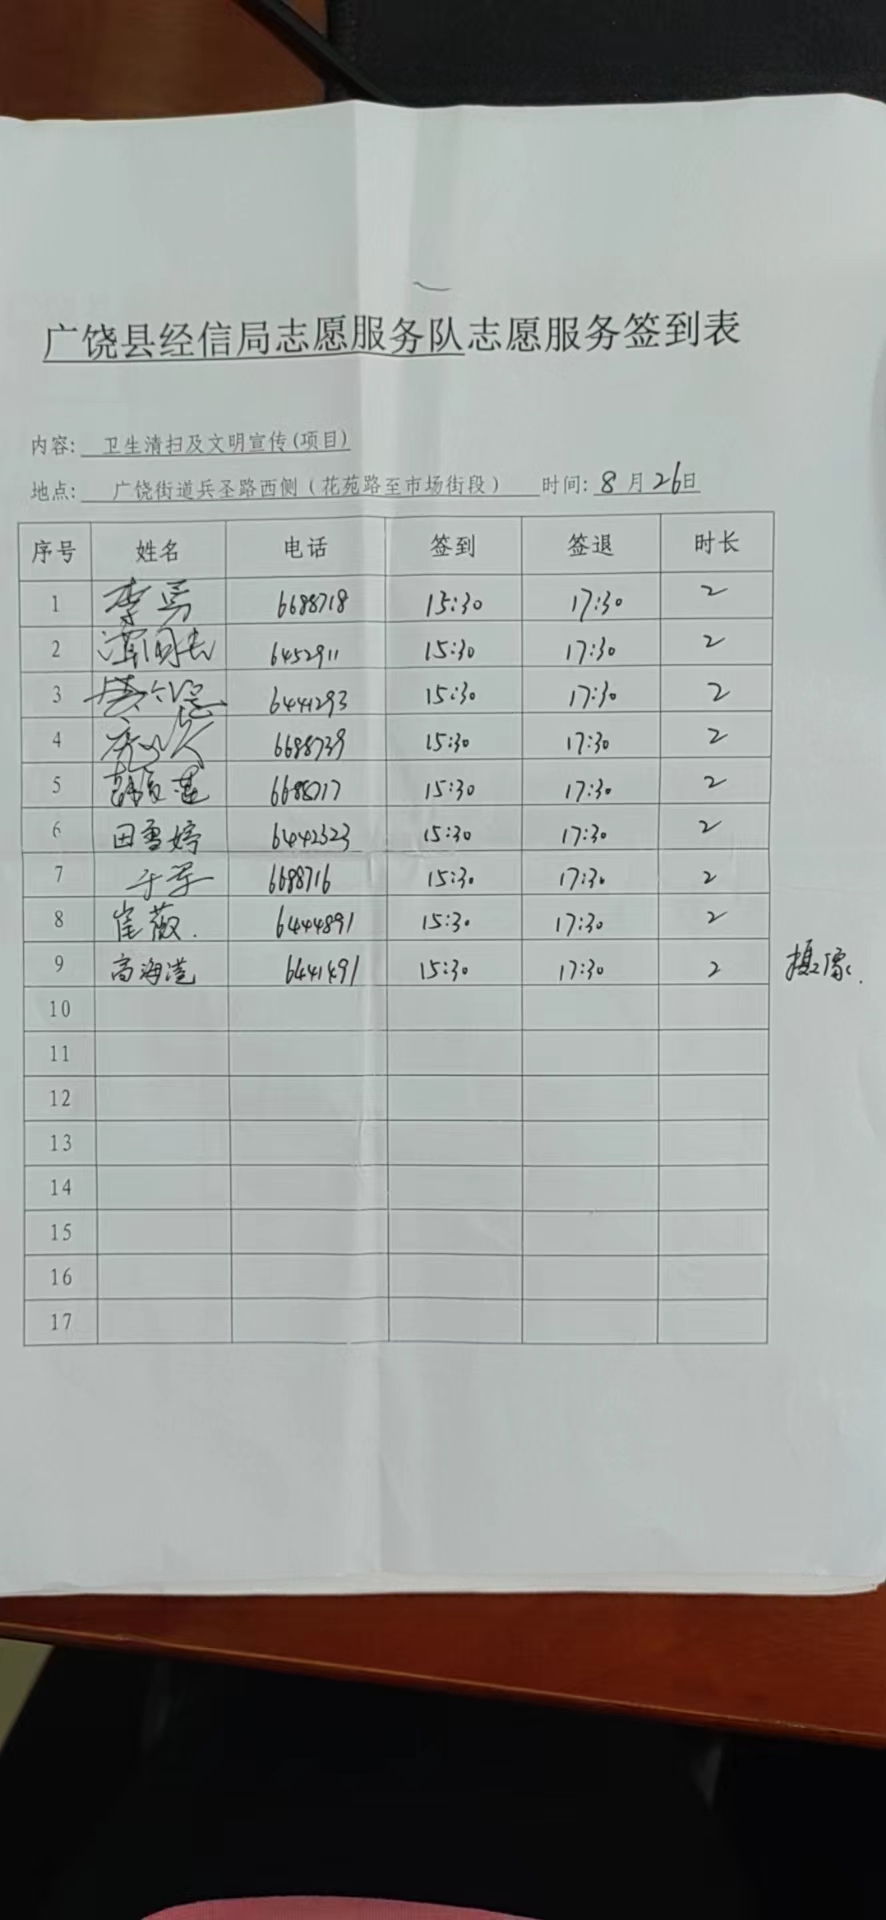 广饶县经信局志愿服务队志愿服务签到表
内容: 卫生清扫及文明宣传(项目)
地点: 广饶街道兵圣路西侧(花苑路至市场街段) 时间: 8月26日
序号 姓名 电话 签到 签退 时长
1 李勇 6688718 15:30 17:30 2
2 6452911 15:30 17:30 2
3 6441293 15:30 17:30 2
4 6688739 15:30 17:30 2
5 6688717 15:30 17:30 2
6 田雪婷 6442323 15:30 17:30 2
7 于军 6688716 15:30 17:30 2
8 崔薇. 6444891 15:30 17:30 2
9 高海滢 6441491 15:30 17:30 2 摄像.
10
11
12
13
14
15
16
17